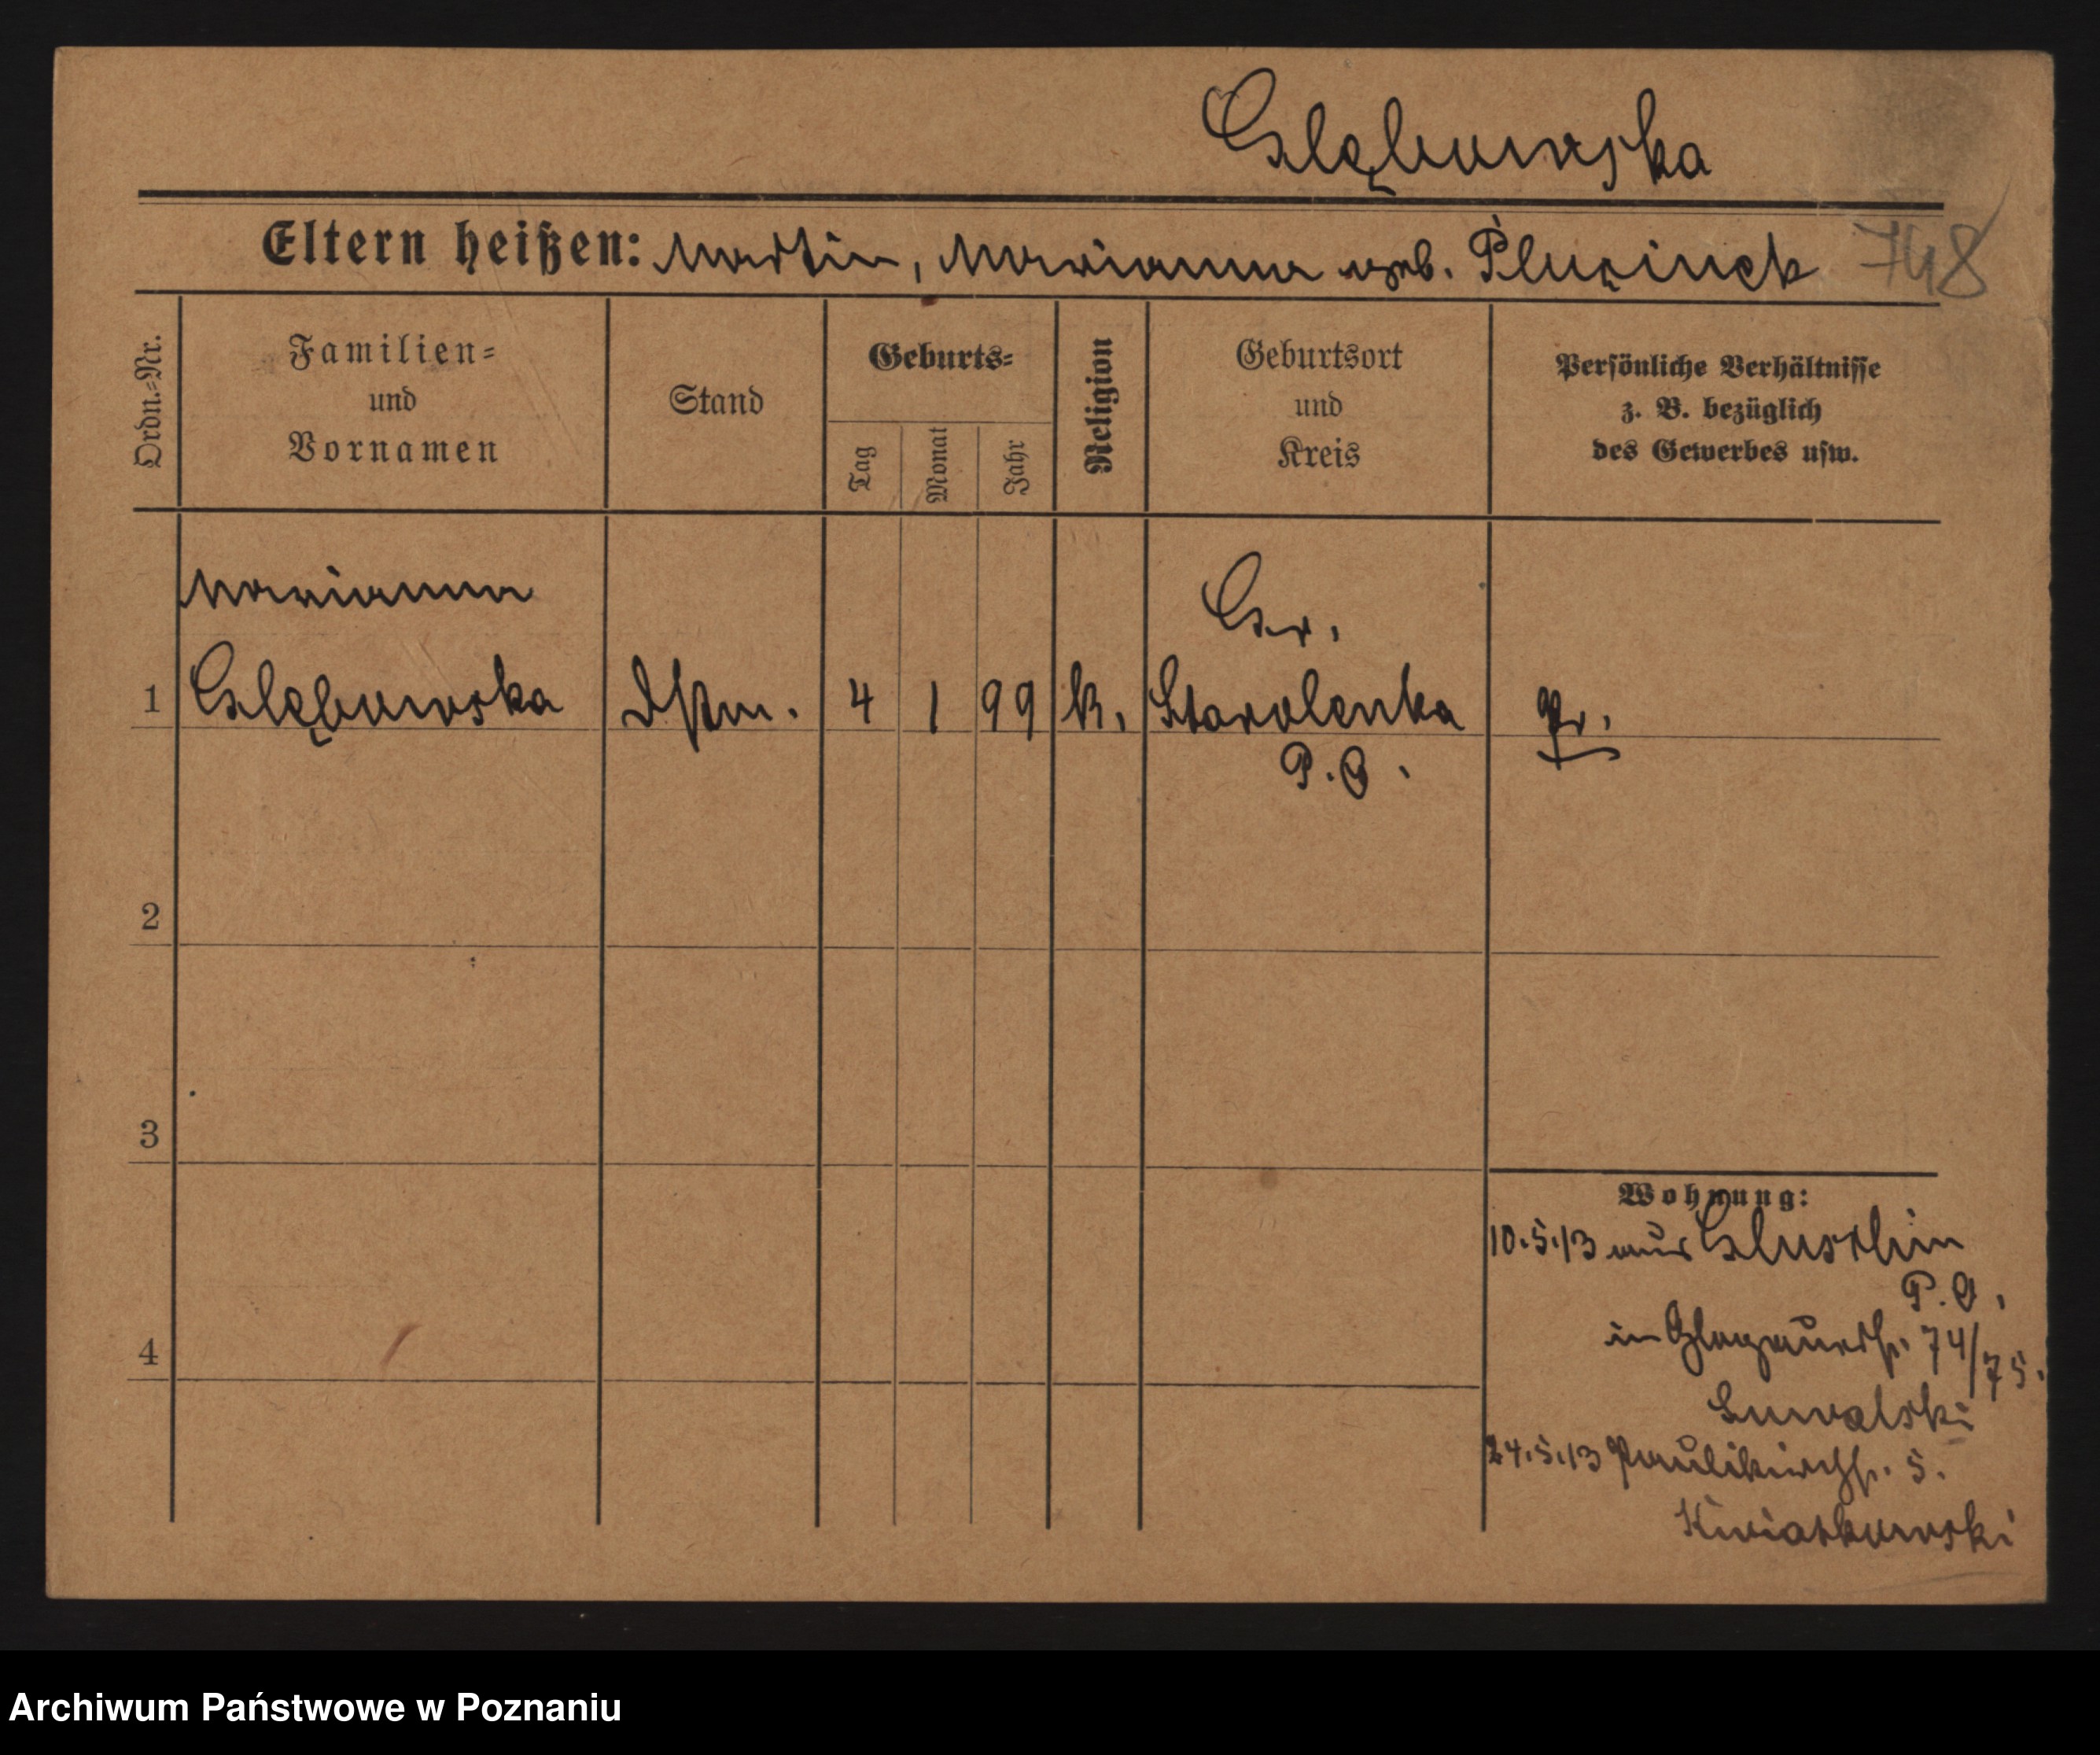 Głębowska
Eltern heißen: Martin, Marianna geb. Plucinsk 748
Ordn.=Nr.
Familien=
und
Vornamen
Stand
Geburts=
Tag
Monat
Jahr
Religion
Geburtsort
und
Kreis
Persönliche Verhältnisse
z. B. bezüglich
des Gewerbes usw.
Marianna
Gr.
1 Glębowska Dstm. 4 1 99 k. Starolenka Pr.
P. O.
2
3
4
Wohnung:
10.5.13 aus Gluschin
P. O.
in Glogauerstr. 74/75.
Suwalski
24.5.13 Paulikirchstr. 5.
Kwiatkowski
Archiwum Państwowe w Poznaniu